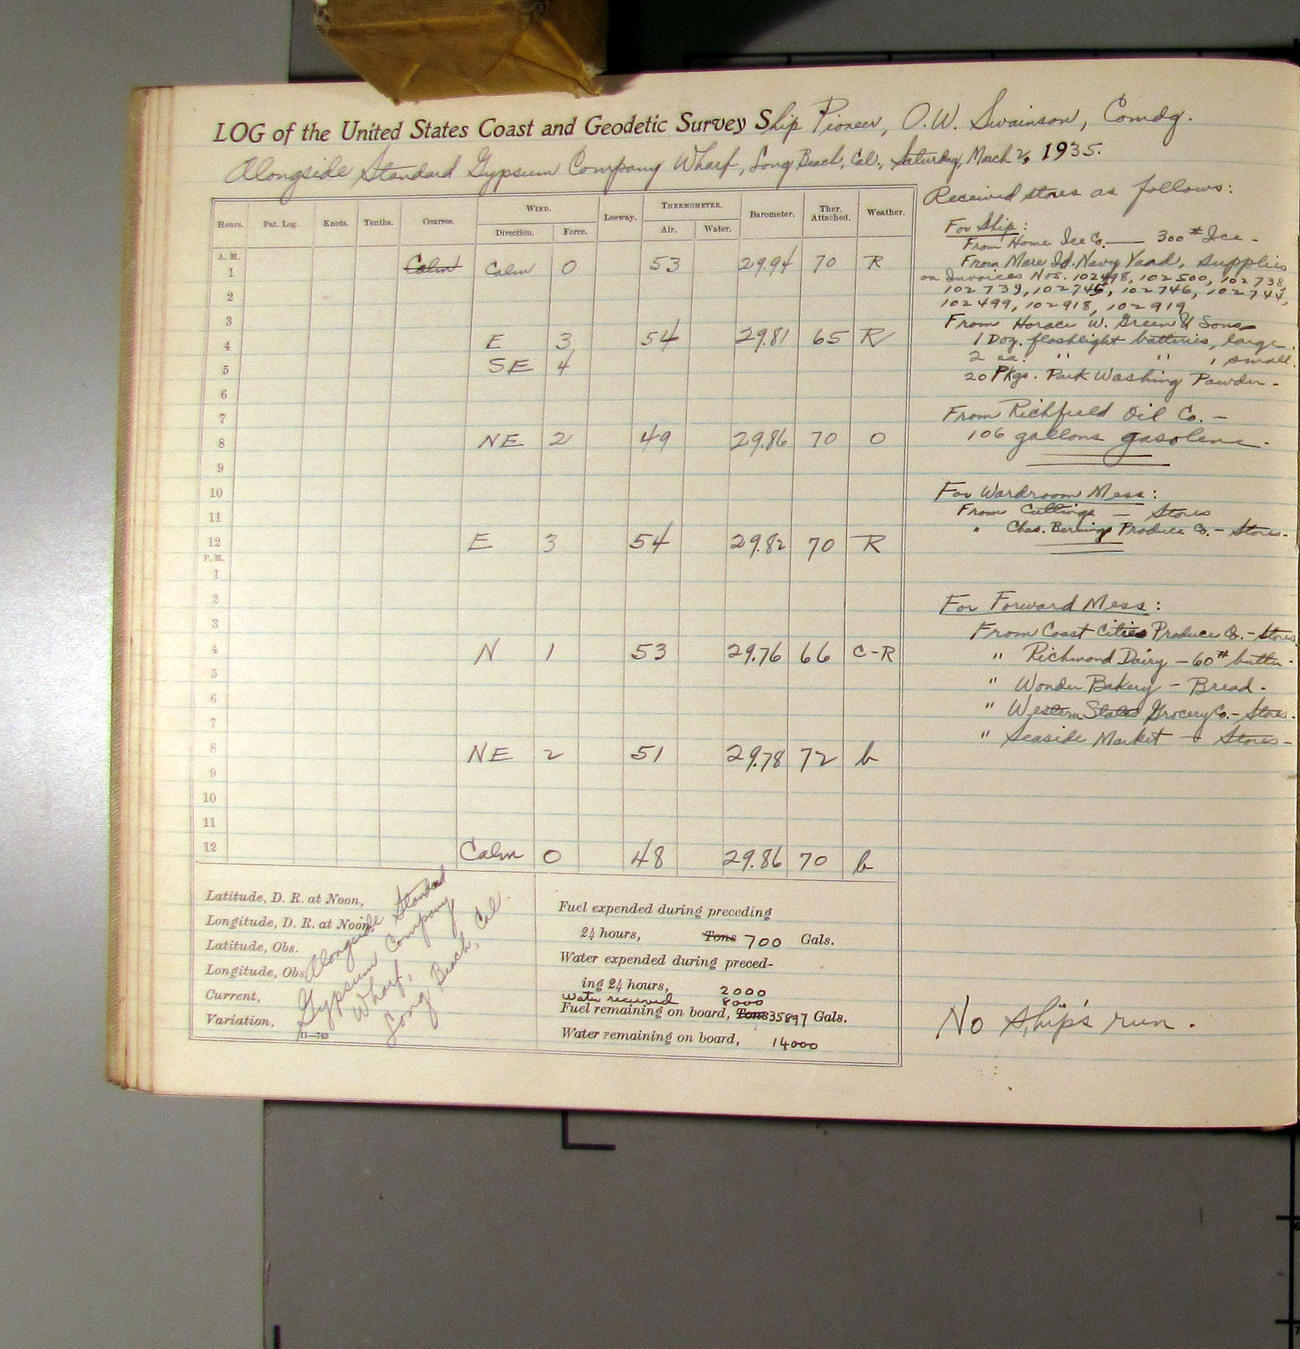 LOG of the United States Coast and Geodetic Survey Ship Pioneer, O.W. Swainson, Comdg.
Alongside Standard Gypsum Company Wharf, Long Beach, Cal., Saturday, March 2, 1935.
Hours. Pat. Log. Knots. Tenths. Courses. WIND. Leeway. THERMOMETER. Barometer. Ther. Attached. Weather.
Direction. Force. Air. Water.
A. M.
1 Calm Calm 0 53 29.94 70 R
2
3
4 E 3 54 29.81 65 R
5 SE 4
6
7
8 NE 2 49 29.86 70 O
9
10
11
12 E 3 54 29.82 70 R
P. M.
1
2
3
4 N 1 53 29.76 66 C-R
5
6
7
8 NE 2 51 29.78 72 b
9
10
11
12 Calm 0 48 29.86 70 b
Latitude, D. R. at Noon,
Longitude, D. R. at Noon,
Latitude, Obs.
Longitude, Obs.
Current,
Variation,
11—743
Alongside Standard
Gypsum Company
Wharf,
Long Beach, Cal
Fuel expended during preceding
24 hours, Tons 700 Gals.
Water expended during preced-
ing 24 hours, 2000
Water received 8000
Fuel remaining on board, Tons 35897 Gals.
Water remaining on board, 14000
Received stores as follows:
For Ship:
From Home Ice Co. — 300 # Ice -
From Mare Id. Navy Yard, supplies
on Invoices Nos. 102498, 102500, 102738,
102739, 102745, 102746, 102744,
102499, 102918, 102919
From Horace W. Green & Sons
1 Doz. flashlight batteries, large.
2 ea. " " , small.
20 Pkgs. Park Washing Powder -
From Richfield Oil Co. -
106 gallons gasoline.
For Wardroom Mess:
From Cuttings — Stores
" Chas. Produce Co. - Stores-
For Forward Mess:
From Coast Cities Produce Co. - Stores
" Richmond Dairy - 60# butter -
" Wonder Bakery - Bread -
" Western States Grocery Co. - Stores.
" Seaside Market - Stores -
No ship's run.